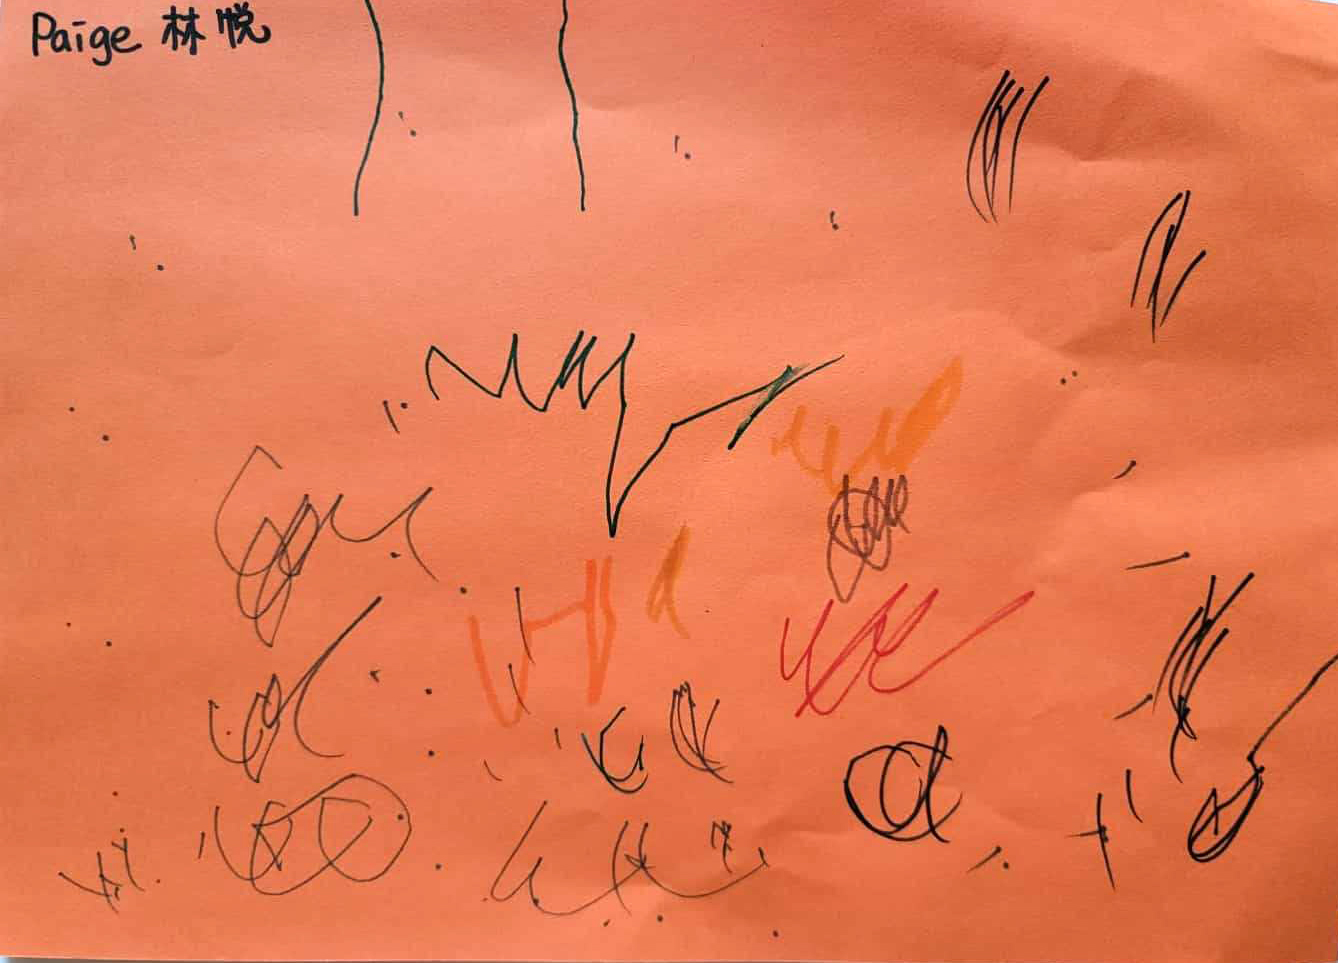 Paige 林悦